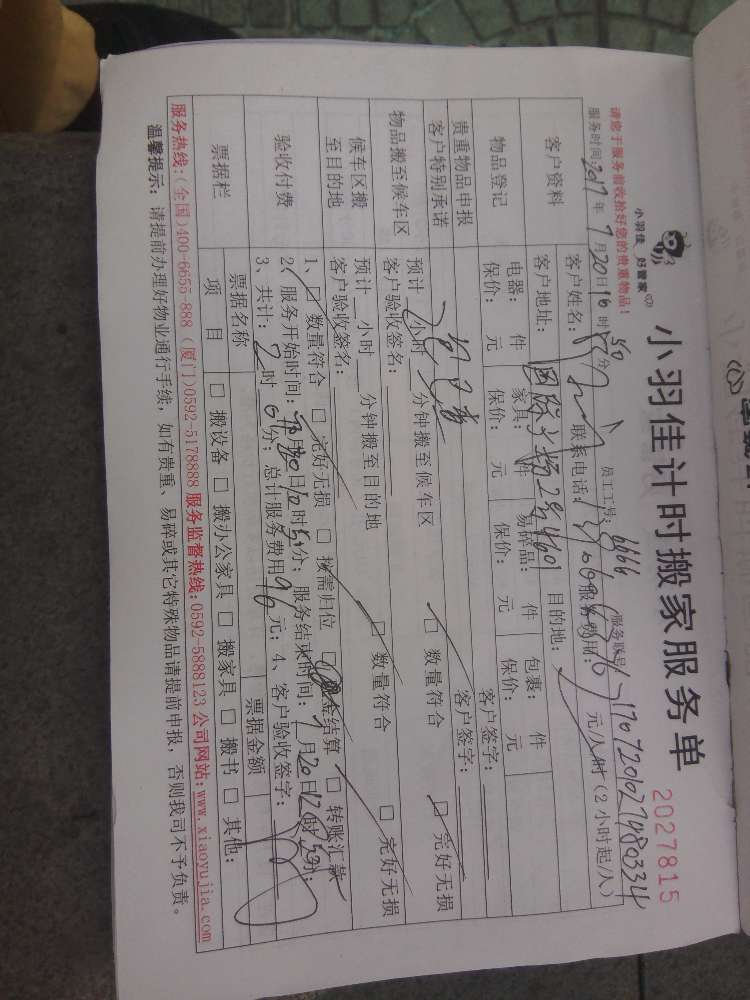 小羽佳 好管家
小羽佳计时搬家服务单
2027815
请您于服务前收拾好您的贵重物品!
员工工号: 6666 服务联号
服务时间: 2017年7月20日
客户资料
客户姓名: 联系电话: 服务费用: 元/人/时(2小时起/人)
客户地址: 国际广场 目的地:
物品登记
电器: 件 家具: 件 易碎品: 件 包裹: 件
保价: 元 保价: 元 保价: 元 保价: 元
贵重物品申报
客户特别承诺
客户签字:
客户签字:
物品搬至候车区
预计 小时 分钟搬至候车区 □ 数量符合 □ 完好无损
客户验收签名:
候车区搬至目的地
预计 小时 分钟搬至目的地 □ 数量符合 □ 完好无损
客户验收签名:
验收付费
1、□ 数量符合 □ 完好无损 □ 按需归位 □ 现金结算 □ 转账汇款
2、服务开始时间: 月20日10时 分; 服务结束时间: 7月20日12时 分;
3、共计: 2时0分; 总计服务费用 元; 4、客户验收签字:
票据栏
票据名称 票据金额
项目 □ 搬设备 □ 搬办公家具 □ 搬家具 □ 搬书 □ 其他:
服务热线:(全国)400-6655-888 (厦门)0592-5178888 服务监督热线:0592-5888123 公司网站:www.xiaoyujia.com
温馨提示: 请提前办理好物业通行手续, 如有贵重、易碎或其它特殊物品请提前申报, 否则我司不予负责。